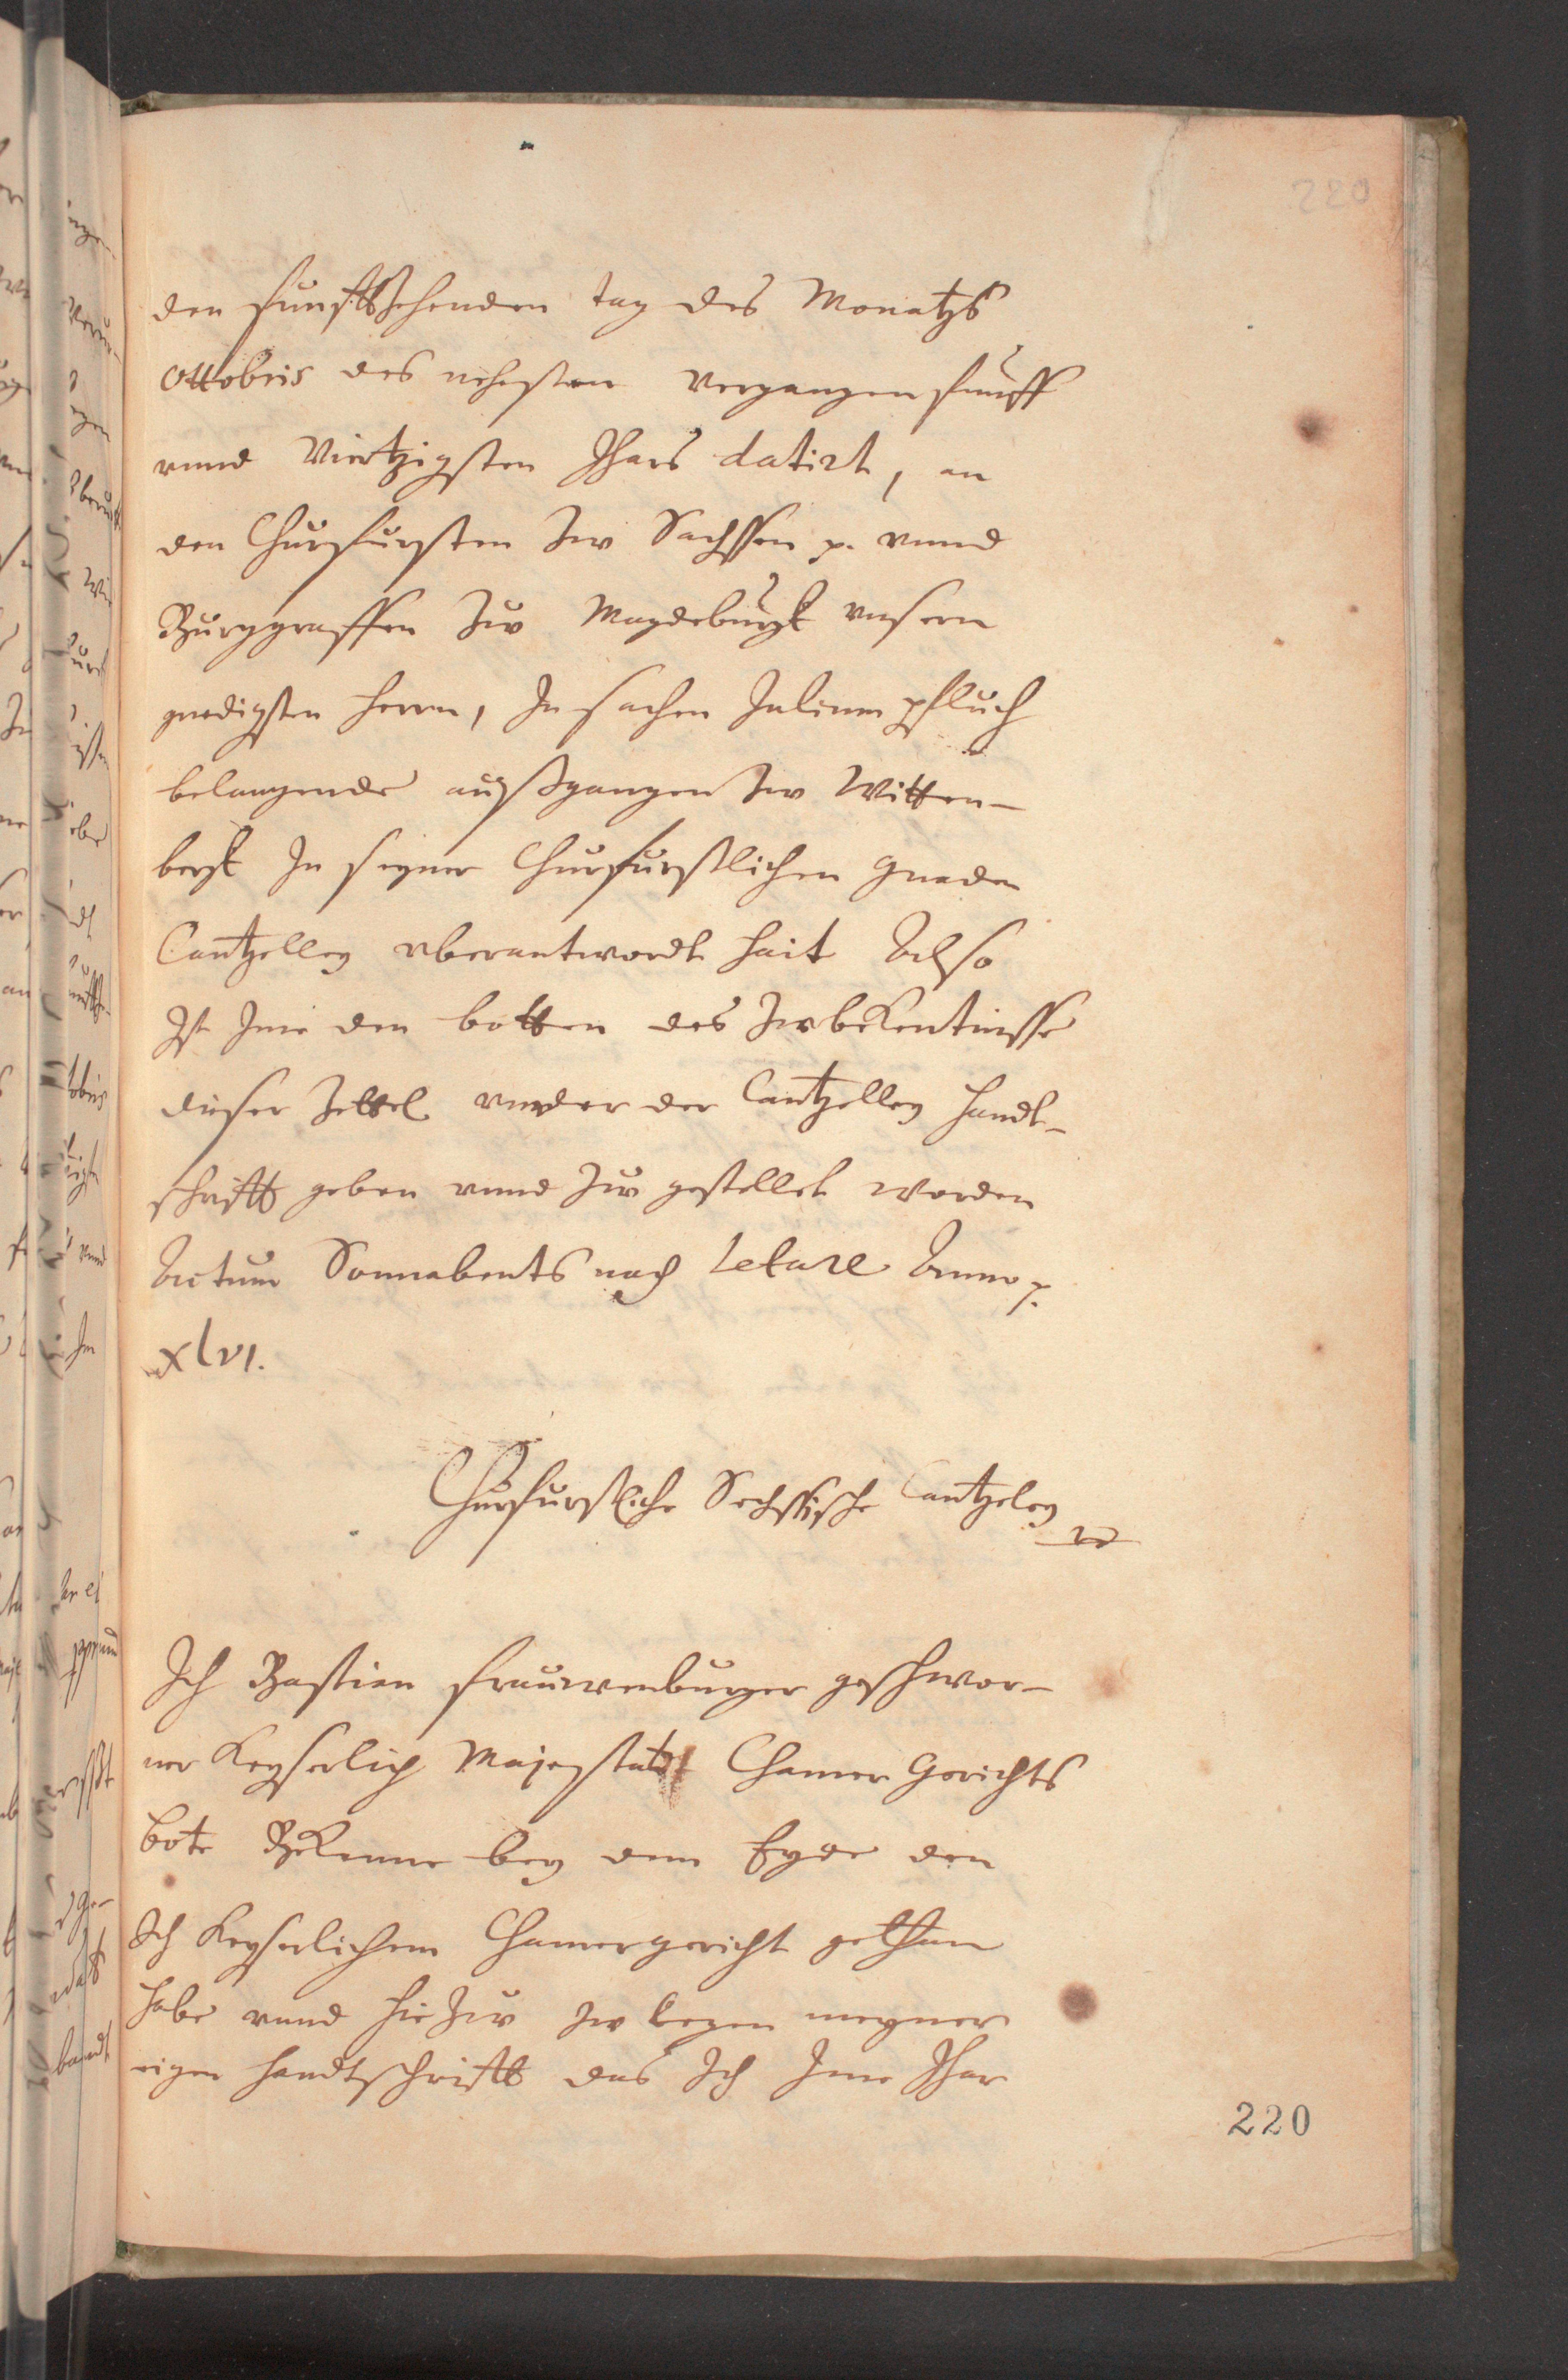 220
den funfftzehenden tag des Monatzs
Ottobris des nehesten vergangen funff
vnnd Viertzigsten Jhars datirt, an
den Churfursten Zw Sachssen p. vnnd
Burggraffen Zw Magdeburgk vnsern
gnedigsten herrn, In sachen Julium pfluch
belangende außgangen Zw Witten-
bergk In seyner Churfurstlichen gnaden
Cantzelley vberantwordt hait Also
Ist Ime den botten des Zwbekentnisse
dieser Zettel vnnder der Cantzelley handt-
schrifft geben vnnd Zw gestellet worden
Actum Sonnabents nach letare Anno p.
xlvi.
Churfurstliche Sechssische Cantzeley
Ich Bastian frauwenburger geschwor-
ner Keyserlich Majestadt Chamer Gerichts
bote Bekenne bey dem Eyde den
Ich Keyserlichem Chamergericht gethan
habe vnnd hie Zw Zw legen meyner
eigen handtschrifft das Ich Ime Jhar
220